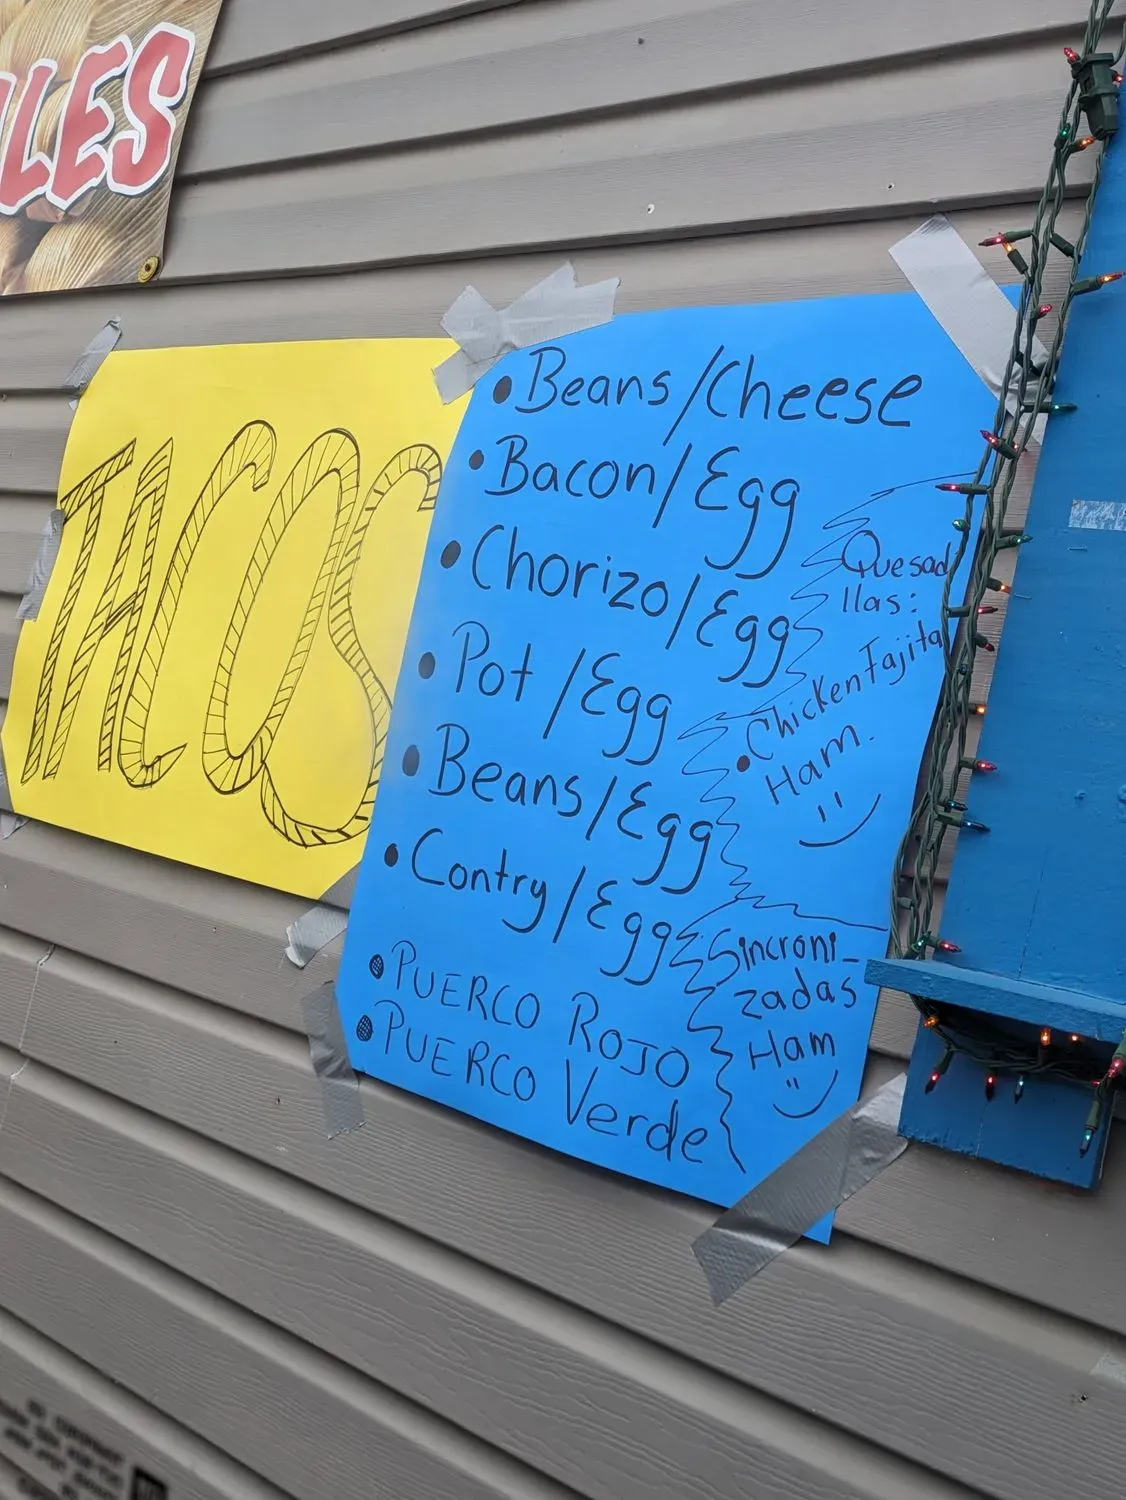 LES
TACOS
• Beans/Cheese
• Bacon/Egg
• Chorizo/Egg
• Pot/Egg
• Beans/Egg
• Contry/Egg
• PUERCO ROJO
• PUERCO Verde
Quesad
llas:
• Chicken Fajita
Ham.
Sincroni_
zadas
Ham